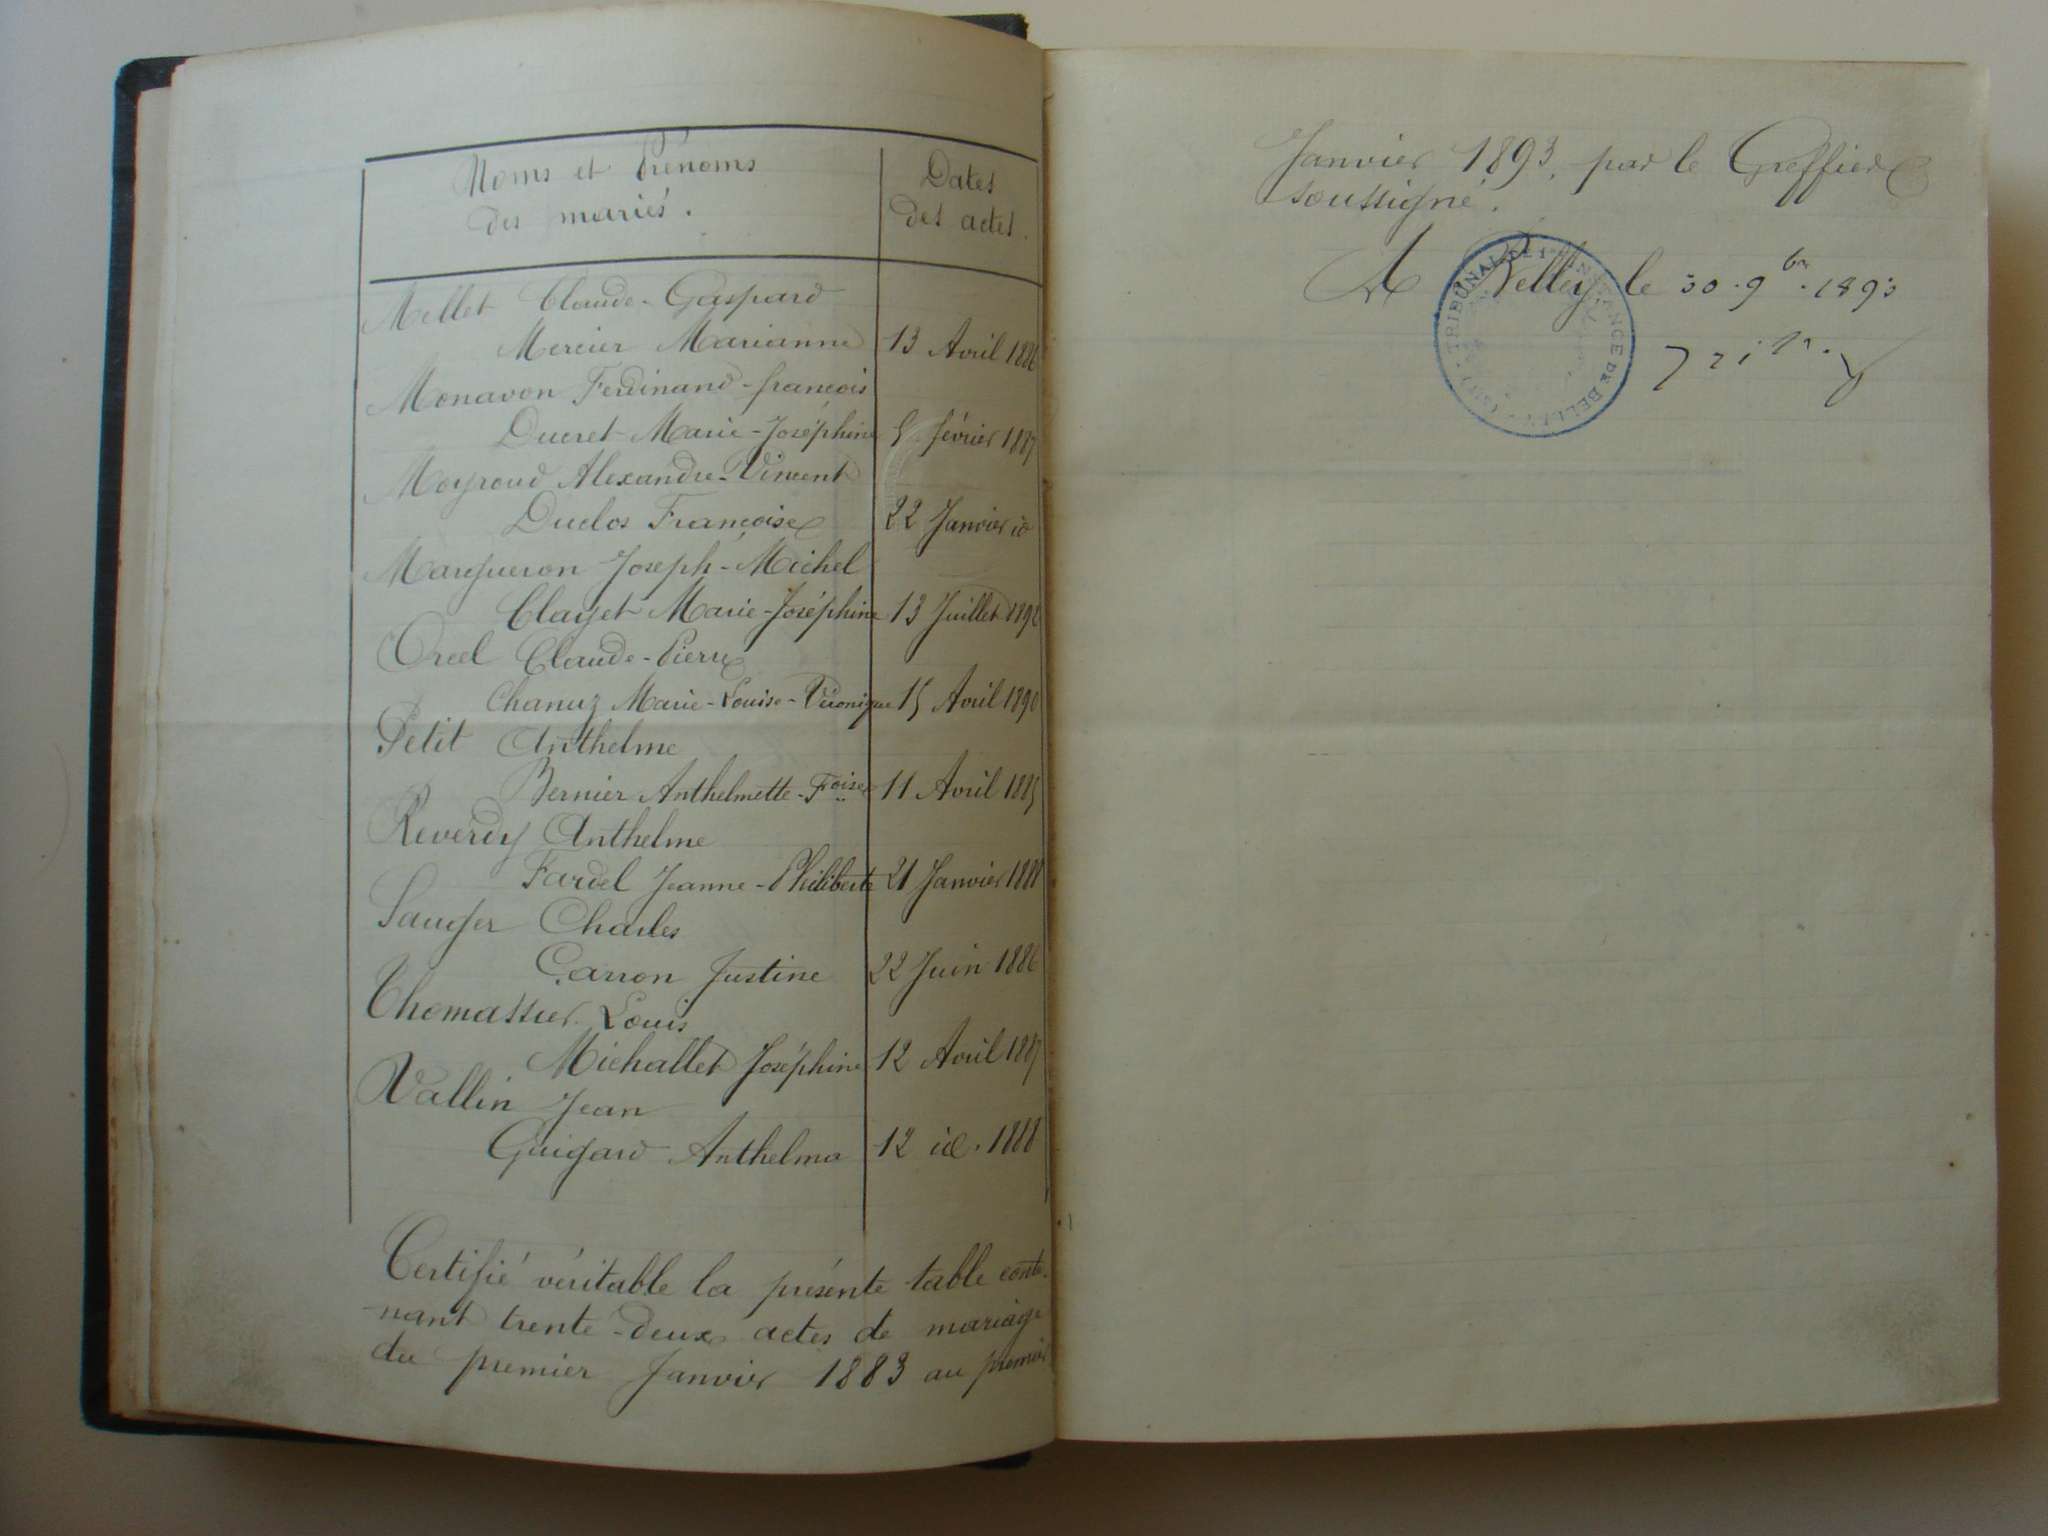 Noms et Prénoms
des mariés.
Dates
des actes.
Mellet Claude-Gaspard
Mercier Marianne 13 Avril 1886
Monavon Ferdinand-françois
Ducret Marie-Joséphine 5 février 1887
Moyroud Alexandre-Vincent
Duclos Françoise 22 Janvier id
Margueron Joseph-Michel
Clayet Marie-Joséphine 13 Juillet 1892
Orcel Claude-Pierre
Chanuz Marie-Louise-Véronique 15 Avril 1890
Petit Anthelme
Bernier Anthelmette-Foise 11 Avril 1885
Reverdy Anthelme
Fardel Jeanne-Philiberte 21 Janvier 1888
Sauger Charles
Carron Justine 22 Juin 1886
Thomassier Louis
Michallet Joséphine 12 Avril 1887
Vallin Jean
Guigard Anthelma 12 id. 1888
Certifié véritable la présente table conte-
nant trente-deux actes de mariage
du premier Janvier 1883 au premier
Janvier 1893, par le Greffier
soussigné.
A Belley le 30 . 9bre . 1893
TRIBUNAL DE 1ère INSTANCE DE BELLEY